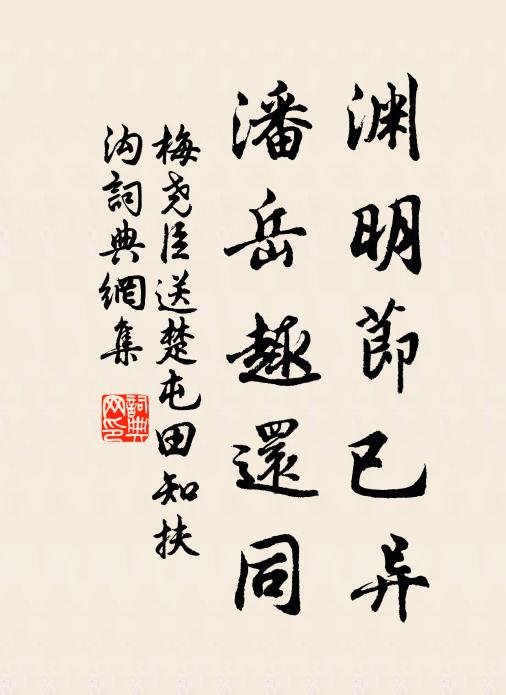 渊明節已异
潘岳趣還同
梅尧臣送楚屯田知扶
沟詞典網集
詞典
网印